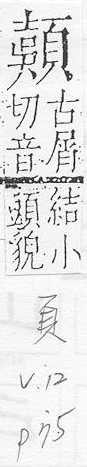 古屑
切音
結小
頭貌
頁
v.12